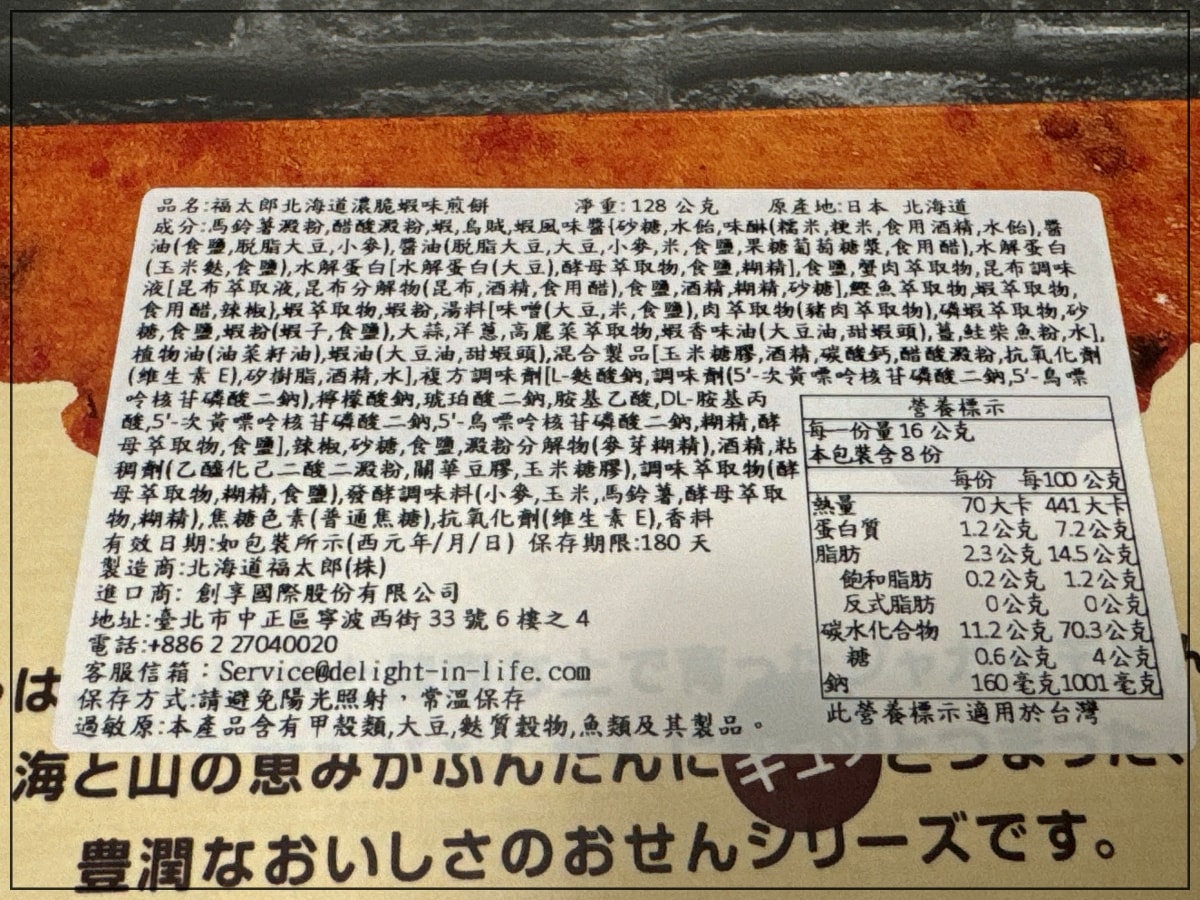 品名:福太郎北海道濃脆蝦味煎餅 淨重:128 公克 原產地:日本 北海道
成分:馬鈴薯澱粉,醋酸澱粉,蝦,烏賊,蝦風味醬{砂糖,水飴,味醂(糯米,粳米,食用酒精,水飴),醬
油(食鹽,脫脂大豆,小麥),醬油(脫脂大豆,大豆,小麥,米,食鹽,果糖葡萄糖漿,食用醋),水解蛋白
(玉米麩,食鹽),水解蛋白[水解蛋白(大豆),酵母萃取物,食鹽,糊精],食鹽,蟹肉萃取物,昆布調味
液[昆布萃取液,昆布分解物(昆布,酒精,食用醋),食鹽,酒精,糊精,砂糖],鰹魚萃取物,蝦萃取物,
食用醋,辣椒},蝦萃取物,蝦粉,湯料[味噌(大豆,米,食鹽),肉萃取物(豬肉萃取物),磷蝦萃取物,砂
糖,食鹽,蝦粉(蝦子,食鹽),大蒜,洋蔥,高麗菜萃取物,蝦香味油(大豆油,甜蝦頭),薑,鮭柴魚粉,水],
植物油(油菜籽油),蝦油(大豆油,甜蝦頭),混合製品[玉米糖膠,酒精,碳酸鈣,醋酸澱粉,抗氧化劑
(維生素 E),矽樹脂,酒精,水],複方調味劑[L-麩酸鈉,調味劑(5'-次黃嘌呤核苷磷酸二鈉,5'-鳥嘌
呤核苷磷酸二鈉),檸檬酸鈉,琥珀酸二鈉,胺基乙酸,DL-胺基丙
酸,5'-次黃嘌呤核苷磷酸二鈉,5'-鳥嘌呤核苷磷酸二鈉,糊精,酵
母萃取物,食鹽],辣椒,砂糖,食鹽,澱粉分解物(麥芽糊精),酒精,粘
稠劑(乙醯化己二酸二澱粉,關華豆膠,玉米糖膠),調味萃取物(酵
母萃取物,糊精,食鹽),發酵調味料(小麥,玉米,馬鈴薯,酵母萃取
物,糊精),焦糖色素(普通焦糖),抗氧化劑(維生素 E),香料
有效日期:如包裝所示(西元年/月/日) 保存期限:180 天
製造商:北海道福太郎(株)
進口商: 創享國際股份有限公司
地址:臺北市中正區寧波西街 33 號 6 樓之 4
電話:+886 2 27040020
客服信箱:Service@delight-in-life.com
保存方式:請避免陽光照射,常溫保存
過敏原:本產品含有甲殼類,大豆,麩質穀物,魚類及其製品。
營養標示
每一份量 16 公克
本包裝含 8 份
每份 每100 公克
熱量 70 大卡 441 大卡
蛋白質 1.2 公克 7.2 公克
脂肪 2.3 公克 14.5 公克
飽和脂肪 0.2 公克 1.2 公克
反式脂肪 0 公克 0 公克
碳水化合物 11.2 公克 70.3 公克
糖 0.6 公克 4 公克
鈉 160 毫克 1001 毫克
此營養標示適用於台灣
は
海と山の恵みがふんだんにギュッとつまった、
豊潤なおいしさのおせんシリーズです。